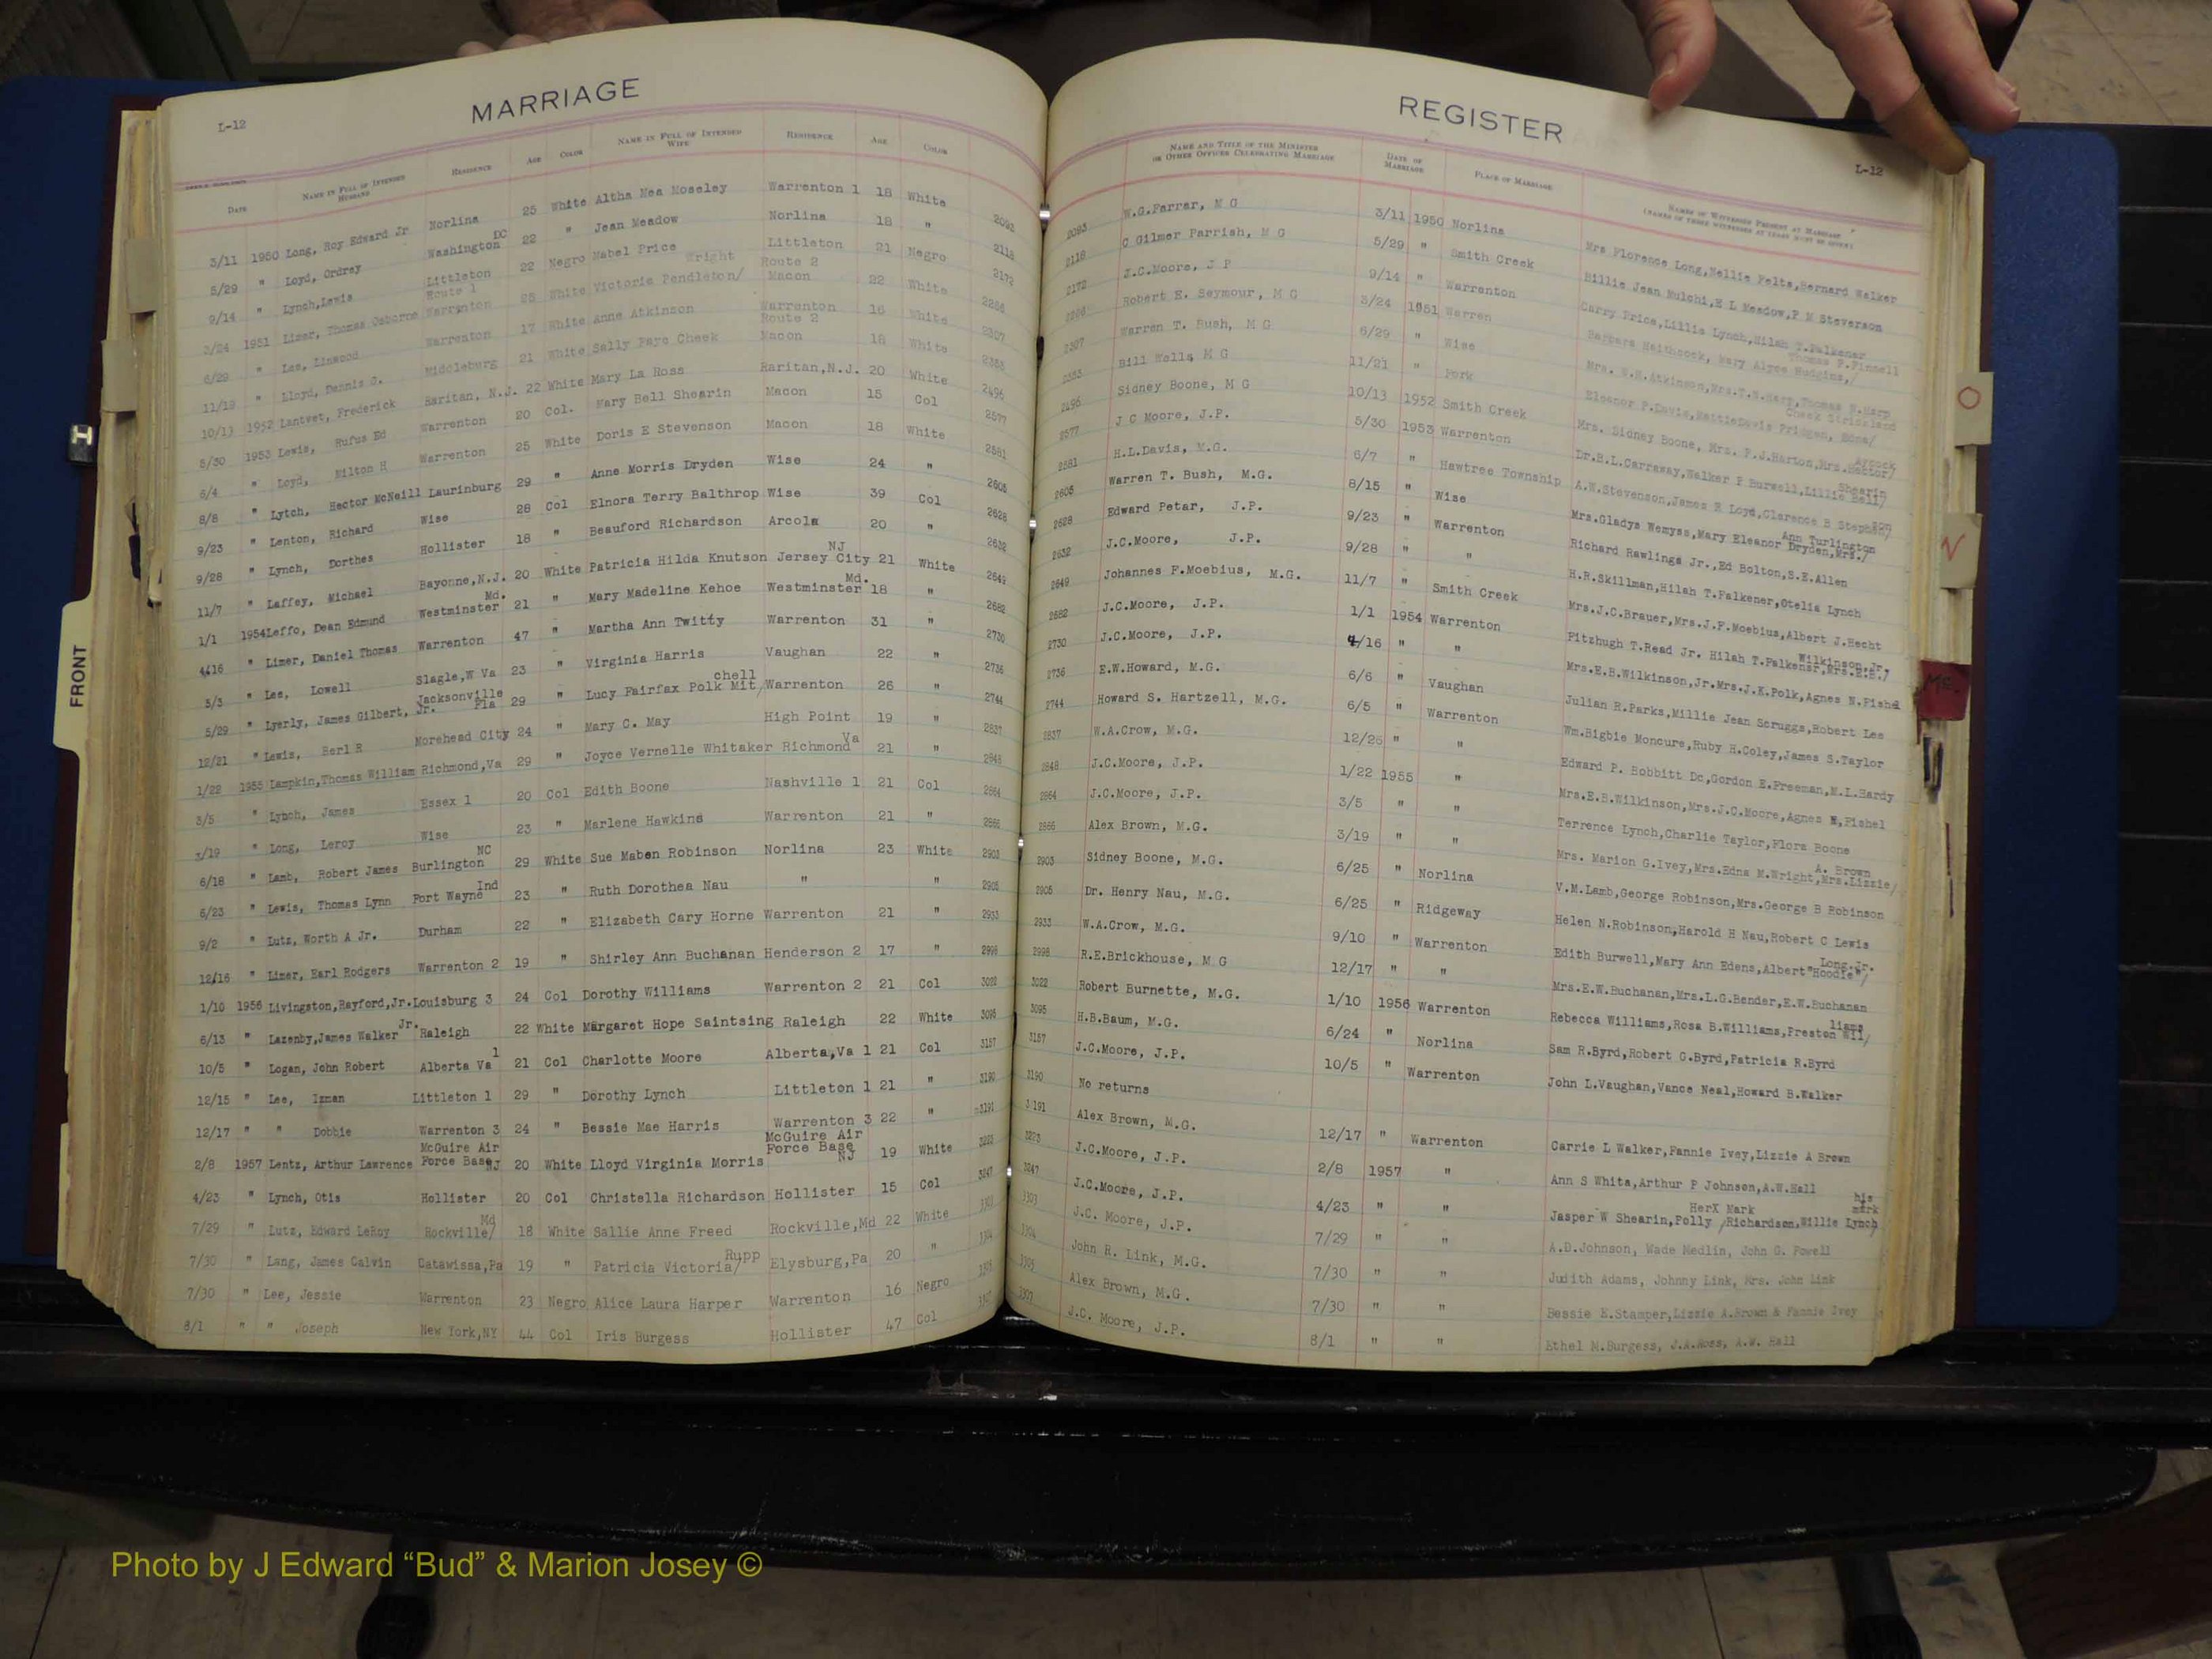 MARRIAGE
L-12
DATE NAME IN FULL OF INTENDED HUSBAND RESIDENCE AGE COLOR NAME IN FULL OF INTENDED WIFE RESIDENCE AGE COLOR
3/11 1950 Long, Roy Edward Jr Norlina 25 White Altha Mea Moseley Warrenton 1 18 White 2093
5/29 " Loyd, Ordrey Washington DC 22 " Jean Meadow Norlina 18 " 2118
9/14 " Lynch,Lewis Littleton Route 1 22 Negro Mabel Price Littleton Route 2 21 Negro 2172
3/24 1951 Limer, Thomas Osborne Warrenton 25 White Victoria Pendleton/ Wright Macon 22 White 2286
6/29 " Lee, Linwood Warrenton 17 White Anne Atkinson Warrenton Route 2 16 White 2307
11/19 " Lloyd, Dennis Middleburg 21 White Sally Faye Cheek Macon 18 White 2353
10/13 1952 Lantvet, Frederick Raritan, N.J. 22 White Mary La Ross Raritan,N.J. 20 White 2496
5/30 1953 Lewis, Rufus Ed Warrenton 20 Col. Mary Bell Shearin Macon 15 Col 2577
6/4 " Loyd, Milton H Warrenton 25 White Doris E Stevenson Macon 18 White 2581
8/8 " Lytch, Hector McNeill Laurinburg 29 " Anne Morris Dryden Wise 24 " 2605
9/23 " Lenton, Richard Wise 28 Col Elnora Terry Balthrop Wise 39 Col 2628
9/28 " Lynch, Dorthes Hollister 18 " Beauford Richardson Arcola 20 " 2632
11/7 " Laffey, Michael Bayonne,N.J. 20 White Patricia Hilda Knutson Jersey City NJ 21 White 2649
1/1 1954 Leffo, Dean Edmund Westminster Md. 21 " Mary Madeline Kehoe Westminster Md. 18 " 2682
4/16 " Limer, Daniel Thomas Warrenton 47 " Martha Ann Twitty Warrenton 31 " 2730
5/3 " Lee, Lowell Slagle,W Va 23 " Virginia Harris Vaughan 22 " 2736
5/29 " Lyerly, James Gilbert, Jr. Jacksonville Fla 29 " Lucy Fairfax Polk Mit/chell Warrenton 26 " 2744
12/21 " Lewis, Berl R Morehead City 24 " Mary C. May High Point 19 " 2837
1/22 1955 Lampkin,Thomas William Richmond,Va 29 " Joyce Vernelle Whitaker Richmond Va 21 " 2848
3/5 " Lynch, James Essex 1 20 Col Edith Boone Nashville 1 21 Col 2864
3/19 " Long, Leroy Wise 23 " Marlene Hawkins Warrenton 21 " 2866
6/18 " Lamb, Robert James Burlington NC 29 White Sue Maben Robinson Norlina 23 White 2903
6/23 " Lewis, Thomas Lynn Fort Wayne Ind 23 " Ruth Dorothea Nau " " 2905
9/2 " Lutz, Worth A Jr. Durham 22 " Elizabeth Cary Horne Warrenton 21 " 2933
12/16 " Limer, Earl Rodgers Warrenton 2 19 " Shirley Ann Buchanan Henderson 2 17 " 2998
1/10 1956 Livingston,Rayford,Jr. Louisburg 3 24 Col Dorothy Williams Warrenton 2 21 Col 3022
6/13 " Lazenby,James Walker Jr. Raleigh 22 White Margaret Hope Saintsing Raleigh 22 White 3095
10/5 " Logan, John Robert Alberta Va 1 21 Col Charlotte Moore Alberta,Va 1 21 Col 3157
12/15 " Lee, Izman Littleton 1 29 " Dorothy Lynch Littleton 1 21 " 3190
12/17 " " Dobbie Warrenton 3 24 " Bessie Mae Harris Warrenton 3 22 " 3191
2/8 1957 Lentz, Arthur Lawrence McGuire Air Force Base NJ 20 White Lloyd Virginia Morris McGuire Air Force Base NJ 19 White 3223
4/23 " Lynch, Otis Hollister 20 Col Christella Richardson Hollister 15 Col 3247
7/29 " Lutz, Edward LeRoy Rockville/ Md 18 White Sallie Anne Freed Rockville,Md 22 White 3303
7/30 " Lang, James Calvin Catawissa,Pa 19 " Patricia Victoria/ Rupp Elysburg,Pa 20 " 3304
7/30 " Lee, Jessie Warrenton 23 Negro Alice Laura Harper Warrenton 16 Negro 3305
8/1 " " Joseph New York,NY 44 Col Iris Burgess Hollister 47 Col 3307
REGISTER
L-12
NAME AND TITLE OF THE MINISTER OR OTHER OFFICER CELEBRATING MARRIAGE DATE OF MARRIAGE PLACE OF MARRIAGE NAMES OF WITNESSES PRESENT AT MARRIAGE
2093 W.G.Farrar, M G 3/11 1950 Norlina Mrs Florence Long,Nellie Felts,Bernard Walker
2118 C Gilmer Parrish, M G 5/29 " Smith Creek Billie Jean Mulchi,E L Meadow,P M Steverson
2172 J.C.Moore, J P 9/14 " Warrenton Carry Price,Lillie Lynch,Hilah T.Falkener
2286 Robert E. Seymour, M G 3/24 1951 Warren Barbara Haithcock, Mary Alyce Hudgins,/ Thomas P.Finnell
2307 Warren T. Bush, M G 6/29 " Wise Mrs. W.H.Atkinson,Mrs.T.N.Harp,Thomas N.Harp
2353 Bill Wells M G 11/21 " Fork Eleanor P.Davis,HattieDavis Pridgen, Edna/ Cheek Strickland
2496 Sidney Boone, M G 10/13 1952 Smith Creek Mrs. Sidney Boone, Mrs. P.J.Barton,Mrs.Hector/ Aycock
2577 J C Moore, J.P. 5/30 1953 Warrenton Dr.B.L.Carraway,Walker P Burwell,Lillie Bell/ Shearin
2581 H.L.Davis, M.G. 6/7 " Hawtree Township A.W.Stevenson,James R Loyd,Clarence B Stephen/ son
2605 Warren T. Bush, M.G. 8/15 " Wise Mrs.Gladys Wemyss,Mary Eleanor Dryden,Mrs./ Ann Turlington
2628 Edward Petar, J.P. 9/23 " Warrenton Richard Rawlings Jr.,Ed Bolton,S.E.Allen
2632 J.C.Moore, J.P. 9/28 " " H.R.Skillman,Hilah T.Falkener,Otelia Lynch
2649 Johannes F.Moebius, M.G. 11/7 " Smith Creek Mrs.J.C.Brauer,Mrs.J.F.Moebius,Albert J.Hecht
2682 J.C.Moore, J.P. 1/1 1954 Warrenton Fitzhugh T.Read Jr. Hilah T.Falkener,Mrs.E.B./ Wilkinson,Jr.
2730 J.C.Moore, J.P. 4/16 " " Mrs.E.B.Wilkinson,Jr.Mrs.J.K.Polk,Agnes N.Fishel
2736 E.W.Howard, M.G. 6/6 " Vaughan Julian R.Parks,Millie Jean Scruggs,Robert Lee
2744 Howard S. Hartzell, M.G. 6/5 " Warrenton Wm.Bigbie Moncure,Ruby H.Coley,James S.Taylor
2837 W.A.Crow, M.G. 12/26 " " Edward P. Bobbitt Dc,Gordon E.Freeman,M.L.Hardy
2848 J.C.Moore, J.P. 1/22 1955 " Mrs.E.B.Wilkinson,Mrs.J.C.Moore,Agnes N,Fishel
2864 J.C.Moore, J.P. 3/5 " " Terrence Lynch,Charlie Taylor,Flora Boone
2866 Alex Brown, M.G. 3/19 " " Mrs. Marion G.Ivey,Mrs.Edna M.Wright,Mrs.Lizzie/ A. Brown
2903 Sidney Boone, M.G. 6/25 " Norlina V.M.Lamb,George Robinson,Mrs.George B Robinson
2905 Dr. Henry Nau, M.G. 6/25 " Ridgeway Helen N.Robinson,Harold H Nau,Robert C Lewis
2933 W.A.Crow, M.G. 9/10 " Warrenton Edith Burwell,Mary Ann Edens,Albert"Hoodie"/ Long,Jr.
2998 R.E.Brickhouse, M G 12/17 " " Mrs.E.W.Buchanan,Mrs.L.G.Bender,E.W.Buchanan
3022 Robert Burnette, M.G. 1/10 1956 Warrenton Rebecca Williams,Rosa B.Williams,Preston Wil/ liams
3095 H.B.Baum, M.G. 6/24 " Norlina Sam R.Byrd,Robert G.Byrd,Patricia R.Byrd
3157 J.C.Moore, J.P. 10/5 " Warrenton John L.Vaughan,Vance Neal,Howard B.Walker
3190 No returns
3191 Alex Brown, M.G. 12/17 " Warrenton Carrie L Walker,Fannie Ivey,Lizzie A Brown
3223 J.C.Moore, J.P. 2/8 1957 " Ann S White,Arthur P Johnson,A.W.Hall
3247 J.C.Moore, J.P. 4/23 " " Jasper W Shearin,Polly /Richardson,Willie Lynch HerX Mark his mark
3303 J.C. Moore, J.P. 7/29 " " A.D.Johnson, Wade Medlin, John G. Powell
3304 John R. Link, M.G. 7/30 " " Judith Adams, Johnny Link, Mrs. John Link
3305 Alex Brown, M.G. 7/30 " " Bessie E.Stamper,Lizzie A.Brown & Fannie Ivey
3307 J.C. Moore, J.P. 8/1 " " Ethel M.Burgess, J.A.Ross, A.W. Hall
FRONT
H
O
N
Mc
Photo by J Edward “Bud” & Marion Josey ©